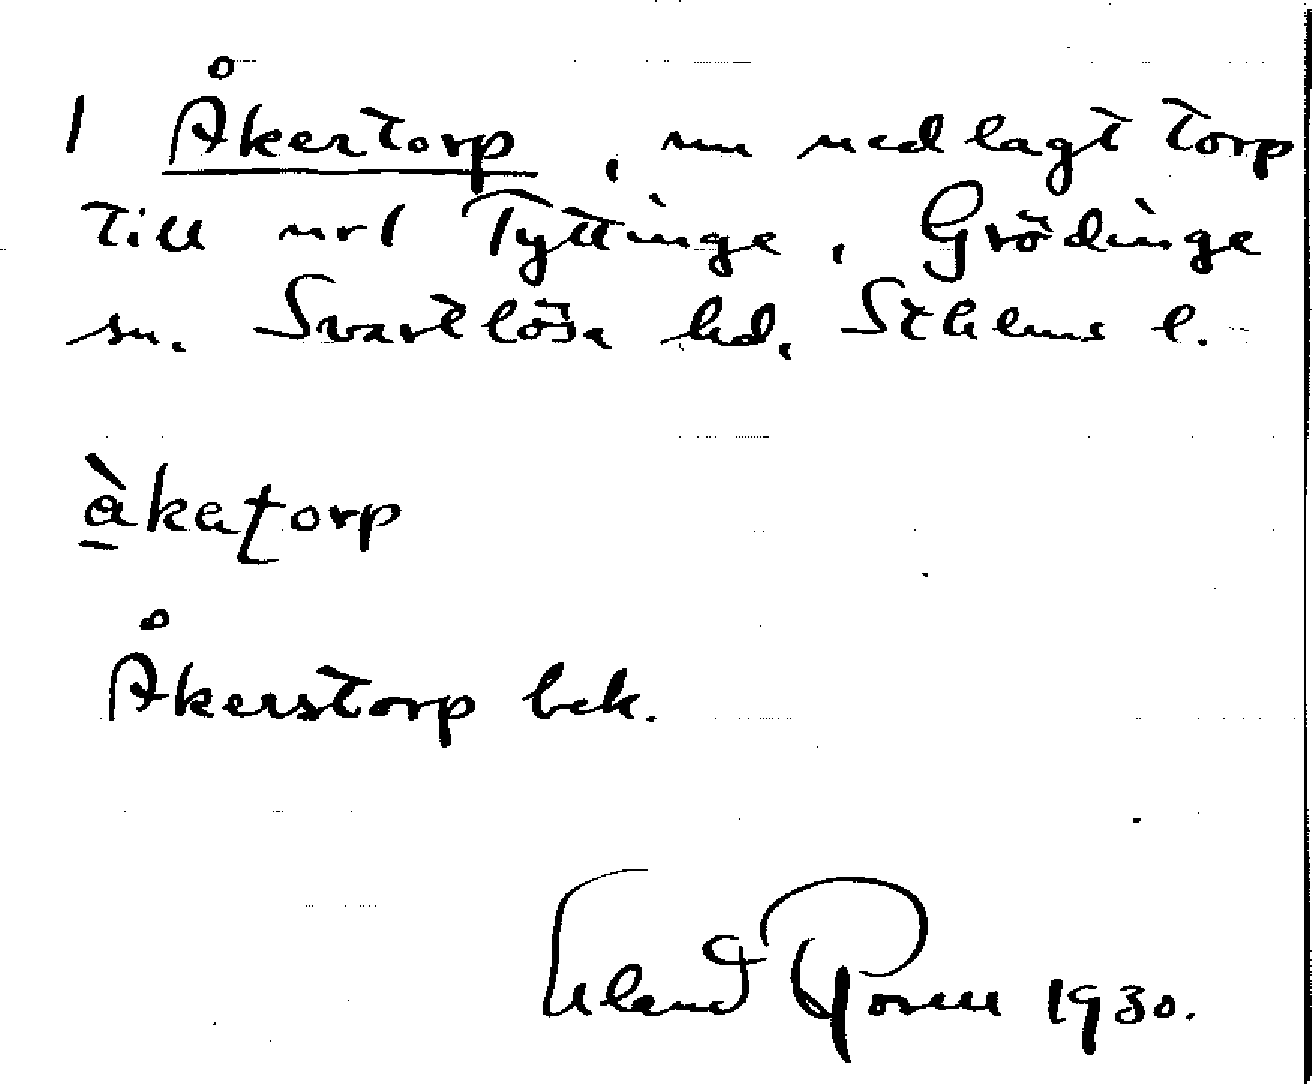 1 Åkertorp, nu nedlagt torp
till nr 1 Tyttinge, Grödinge
sn. Svartlösa hd, Sthlms l.
àkatorp
Åkerstorp bek.
Erland Rosell 1930.